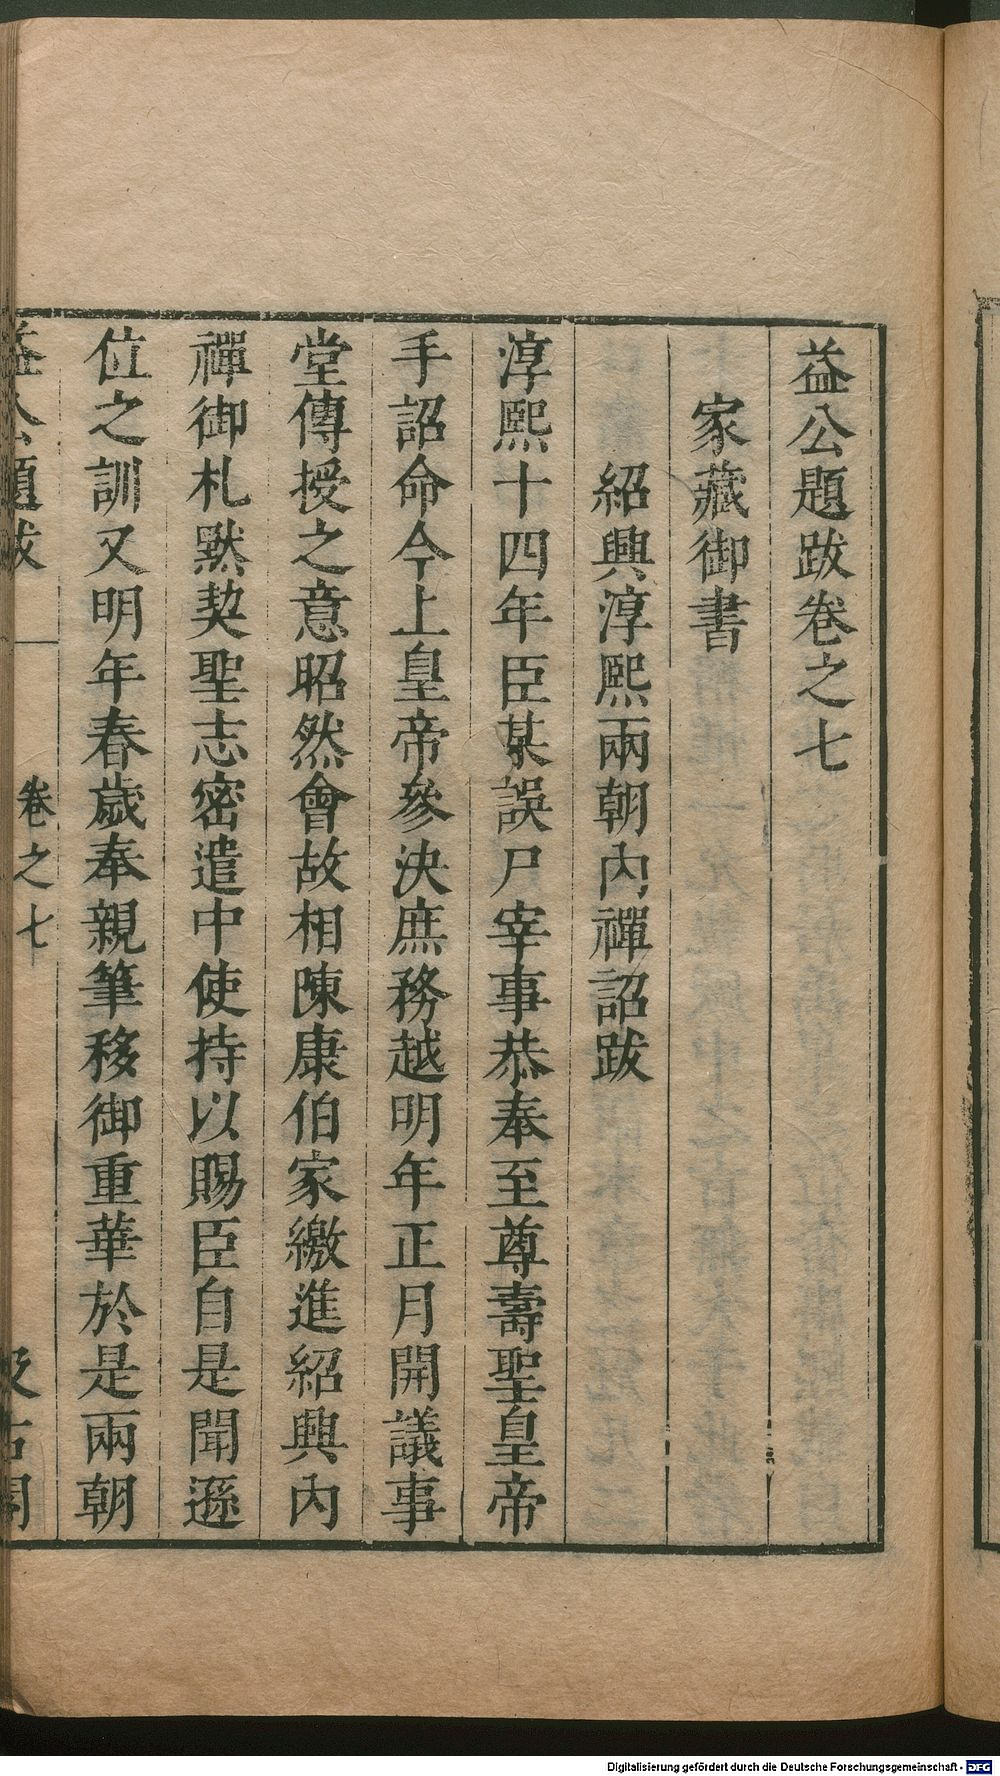 益公題跋卷之七
家藏御書
紹興淳熙兩朝內禪詔跋
淳熙十四年臣某誤尸宰事恭奉至尊壽聖皇帝
手詔命今上皇帝參決庶務越明年正月開議事
堂傳授之意昭然會故相陳康伯家繳進紹興內
禪御札默契聖志密遣中使持以賜臣自是聞遜
位之訓又明年春歲奉親筆移御重華於是兩朝
益公題跋
卷之七
汲古閣
Digitalisierung gefördert durch die Deutsche Forschungsgemeinschaft - DFG